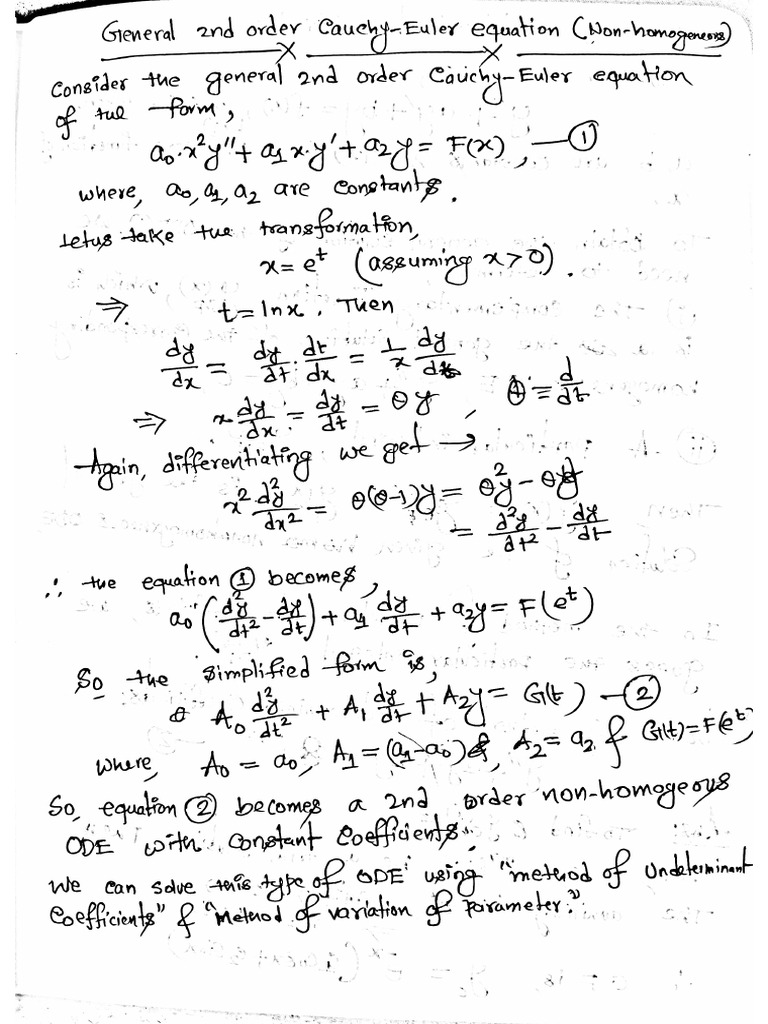 General 2nd order Cauchy-Euler equation (Non-homogeneous)
Consider the general 2nd order Cauchy-Euler equation
of the form,
a₀·x²y'' + a₁x·y' + a₂y = F(x), —①
where, a₀, a₁, a₂ are constants.
Let us take the transformation,
x = eᵗ (assuming x > 0).
⇒ t = ln x. Then
dy/dx = dy/dt · dt/dx = 1/x dy/dt
⇒ x dy/dx = dy/dt = θy, θ = d/dt
Again, differentiating we get →
x² d²y/dx² = θ(θ-1)y = θ²y - θy
= d²y/dt² - dy/dt
∴ the equation ① becomes,
a₀(d²y/dt² - dy/dt) + a₁ dy/dt + a₂y = F(eᵗ)
So the simplified form is,
A₀ d²y/dt² + A₁ dy/dt + A₂y = G(t) —②
where, A₀ = a₀, A₁ = (a₁-a₀), A₂ = a₂ & G(t) = F(eᵗ)
So, equation ② becomes a 2nd order non-homogeous
ODE with constant coefficients.
We can solve this type of ODE using "method of Undeterminant
Coefficients" & "Method of variation of parameter."